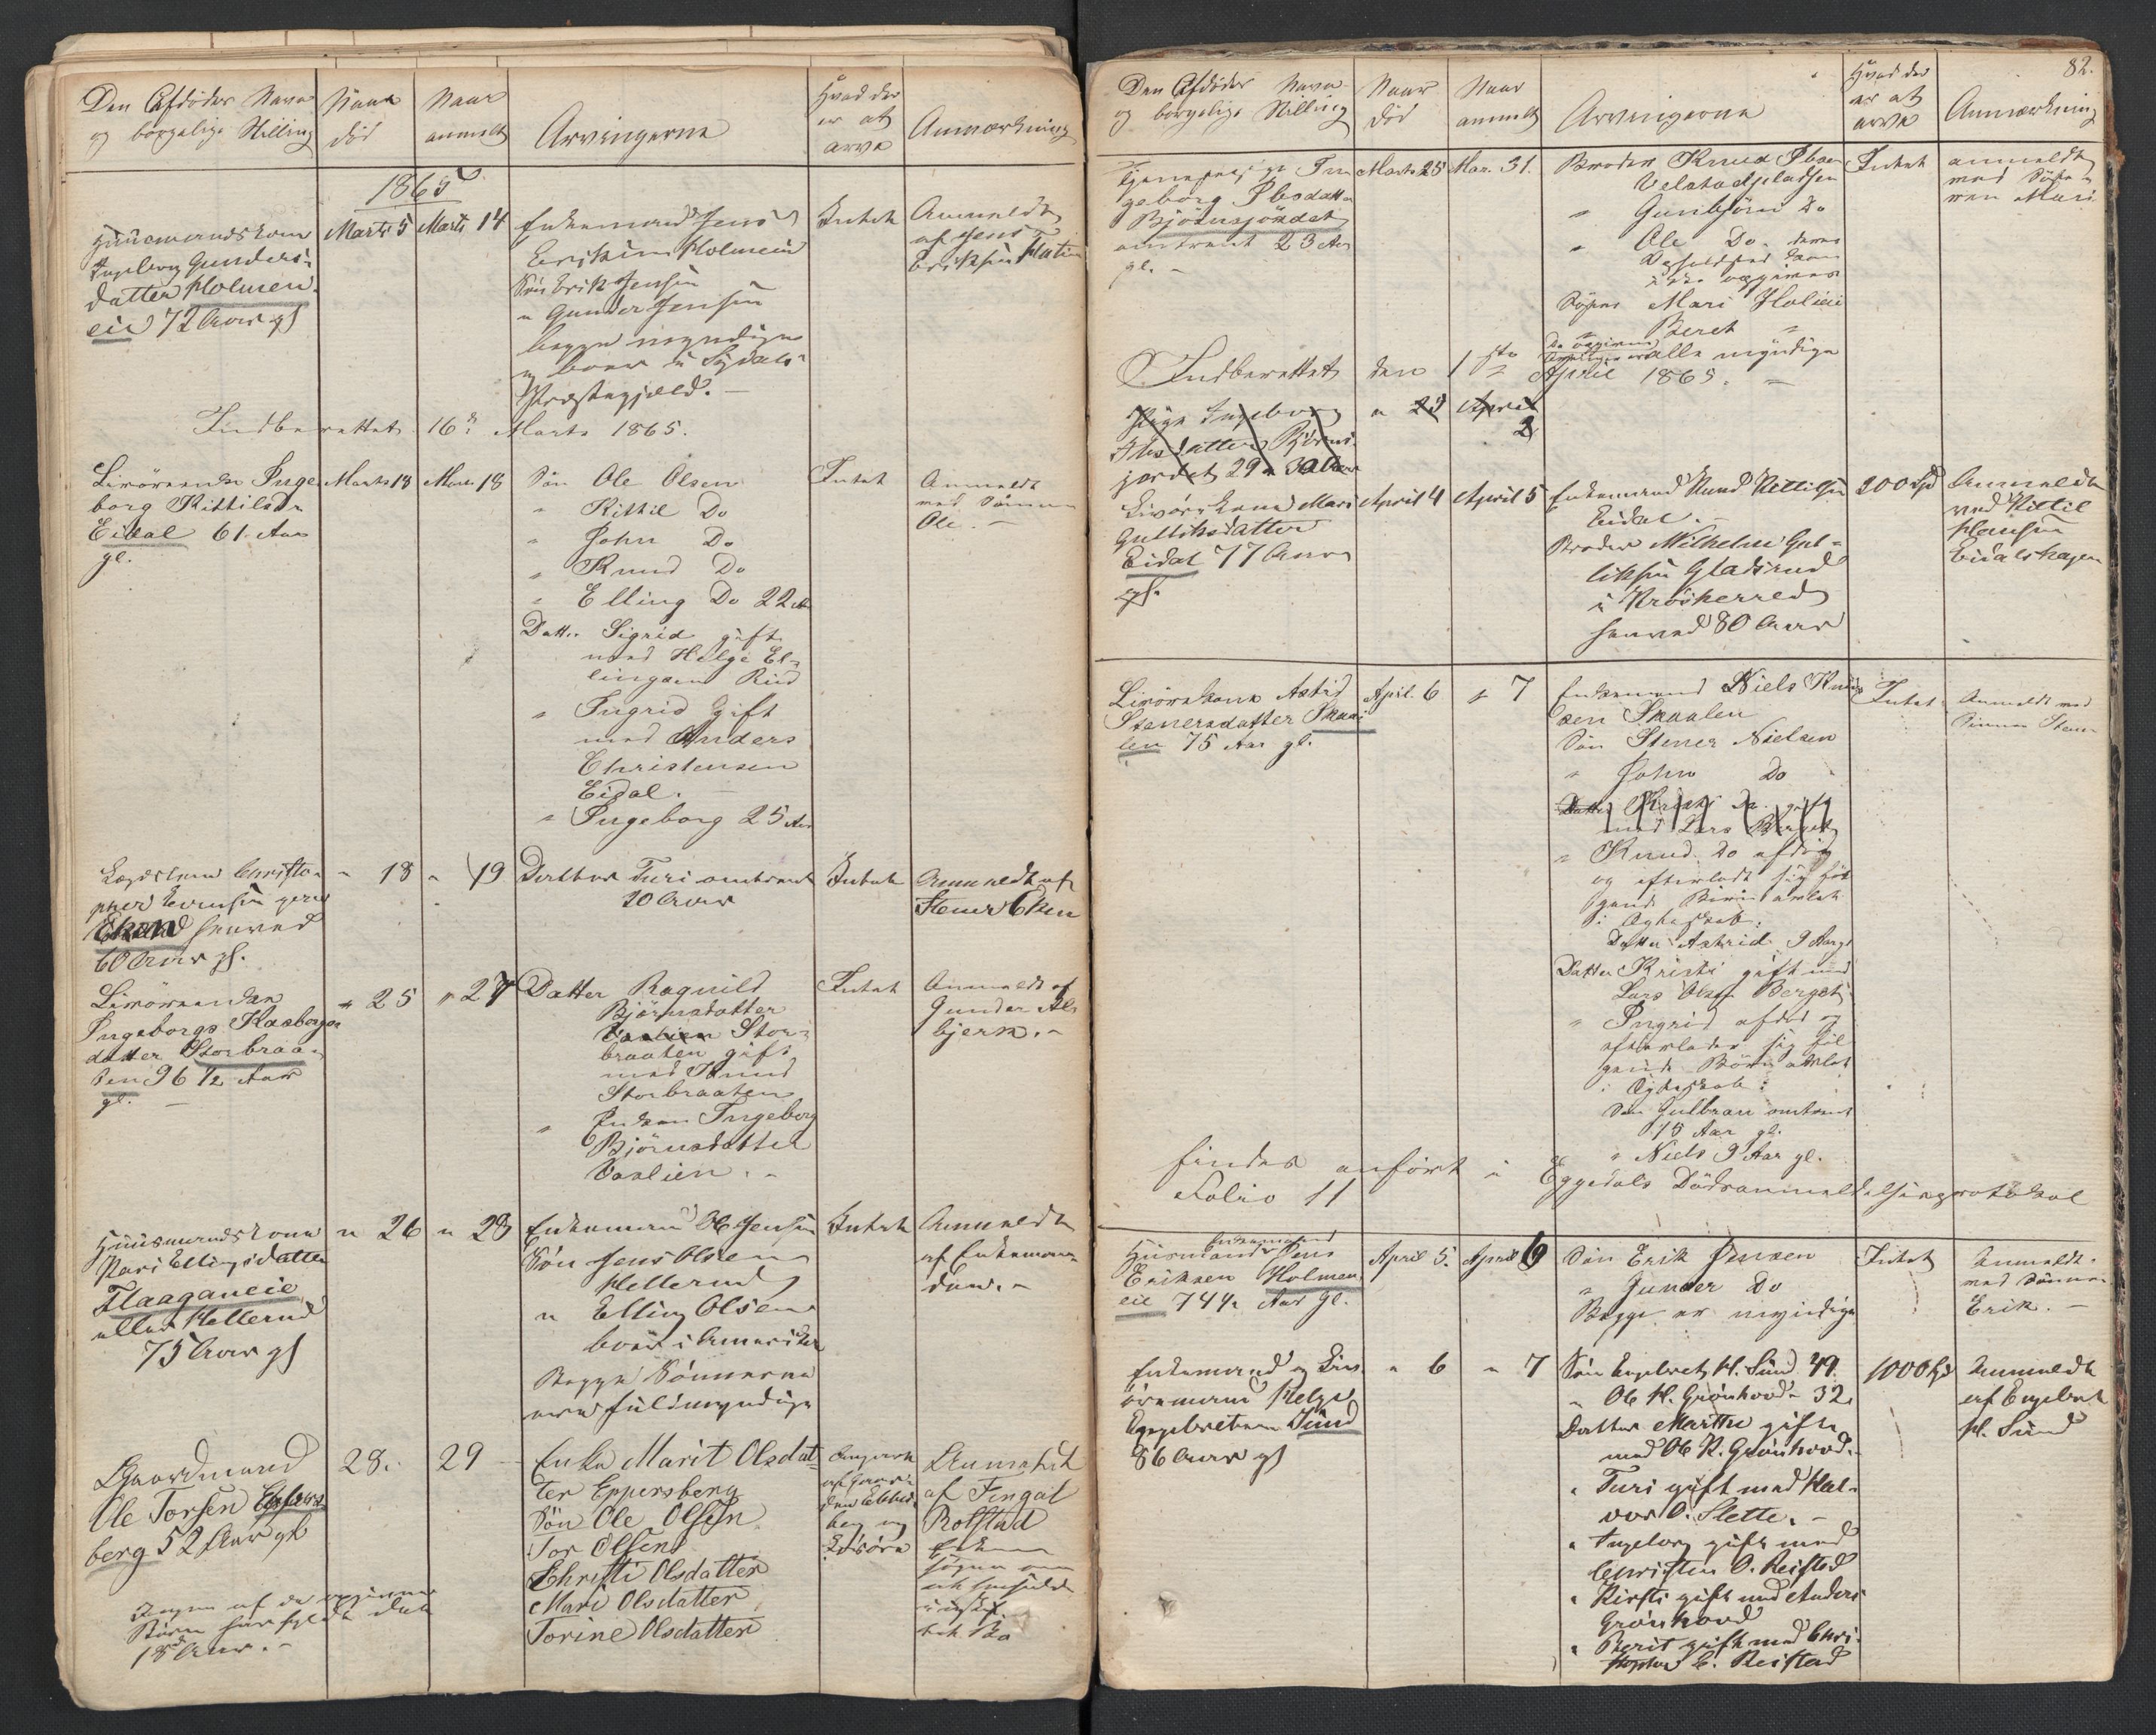 Den Afdødes Navn og borgelige Stilling
Naar død
Naar anmeldt
Arvingerne
Hvad der er at arve
Anmærkning
1865
Huusmandskone
Ingeborg Gunders-
datter Holmen-
eie 72 Aar gl
Marts 5
Marts 14
Enkemand Jens
Eriksen Holmeneie
Søn Erik Jensen
" Gunder Jensen
begge myndige
og boer i Sigdals
Præstegjeld. —
Intet
Anmeldt
af Jens
Eriksen
Indberettet 16de Marts 1865.
Livørenke Inge-
borg Kittilsd.
Eidal 61 Aar
gl.
Marts 18
Marts 18
Søn Ole Olsen
" Kittil Do
" John Do
" Knud Do
" Elling Do 22 Aar
Datter Sigrid gift
med Helge El-
lingsen Rud
" Ingrid gift
med Anders
Christensen
Eidal. —
" Ingeborg 25 Aar
Intet
Anmeldt
ved Sønnen
Ole. —
Lægdslem Christo-
pher Evensen
Eken henved
60 Aar gl.
" 18
" 19
Datter Turi omtrent
20 Aar
Intet
Anmeldt af
Stener Eken
Livørenken
Ingeborg Haaborgs-
datter Storbraa-
ten 96 1/2 Aar
gl. —
" 25
" 27
Datter Ragnild
Bjørnsdatter
Vaalien Stor-
braaten gift
med Knud
Storbraaten
" Enken Ingeborg
Bjørnsdatter
Vaalien. -
Intet
Anmeldt af
Gunder Al-
bjerk. -
Huusmandskone
Kari Ellingsdatter
Flaaganeie
eller Hellerud
75 Aar gl
" 26
" 28
Enkemand Ole Jensen
Søn Jens Olsen
Hellerud
" Elling Olsen
boer i Amerika
Begge Sønnerne
ere fuldmyndige
Intet
Anmeldt
af Enkeman-
den. -
Gaardmand
Ole Torsen Eppers-
berg 52 Aar gl
28.
29
Enke Marit Olsdat-
ter Eppersberg
Søn Ole Olsen
Tor Olsen
Christi Olsdatter
Mari Olsdatter
Torine Olsdatter
Anmeldt
af Fingal
Rolstad
Enken
Ingen af de opgivne
Børn har fyldt det
18de Aar. -
82.
Den Afdødes Navn og borgelige Stilling
Naar død
Naar anmeldt
Arvingerne
Hvad der er at arve
Anmærkning
Tjenestepige In-
geborg Ibsdatter
Bjørnsjordet
omtrent 23 Aar
gl. -
Marts 25
Mar. 31.
Broder Knud Ibsen
Velstadpladsen
" Gunbjørn Do
" Ole Do. deres
Opholdsted kan
ikke opgives
Søster Mari Holien
" Beret "
De opgivne
Arvinger ere alle myndige
Intet
anmeldt
ved Søste-
ren Mari
Indberettet den 1ste April 1865. —
Pige Ingeborg
Ibsdatter Bjørns-
jordet 29 a 30 Aar
" 25
April
2
Livørskone Mari
Gulliksdatter
Eidal 77 Aar
gl.
April 4
April 5
Enkemand Knud Kittilsen
Eidal. -
Broder Wilhelm Gul-
liksen Gladsrud
i Krøsherred
henved 80 Aar
200 Spd
Anmeldt
ved Kittil
Hansen
Eidalshagen
Livørskone Astrid
Stenersdatter Skaa-
len 75 Aar gl.
April. 6
" 7
Enkemand Niels Knud-
sen Skaalen
Søn Stener Nielsen
" John Do
Datter Kristi Do gift
med Lars Berget
" Knud Do afdød
og efterladt sig føl-
gende Børn avlet
i Ægteskab:
Datter Astrid 9 Aar gl
Datter Kristi gift med
Lars Olsen Berget
" Ingrid afdød og
efterlader sig føl-
gende Børn avlet
i Ægteskab:
Søn Gulbran omtrent
15 Aar gl.
" Niels 9 Aar gl.
Intet
Anmeldt ved
Sønnen Stener
findes anført i Eggedals Dødsanmeldelsesprotokol
Folio 11
Enkemand
Huusmand Jens
Eriksen Holmen-
eie 74 1/2 Aar gl.
April 5.
April 6
Søn Erik Jensen
" Gunder Do
Begge er myndige
Intet
Anmeldt
ved Sønnen
Erik. —
Enkemand og Liv-
øremand Helge
Engebretsen Sund
86 Aar gl
" 6
" 7
Søn Engebret H. Sund 49.
" Ole H. Grønhovd 32.
Datter Marthe gift
med Ole K. Grønhovd.
" Turi gift med Hal-
vor O. Slette. -
" Ingeborg gift med
Christen O. Reistad
" Kirsti gift med Anders
Grønhovd
" Berit gift med Chri-
stopher E. Reistad
1000 Spd
Anmeldt
af Engebret
H. Sund